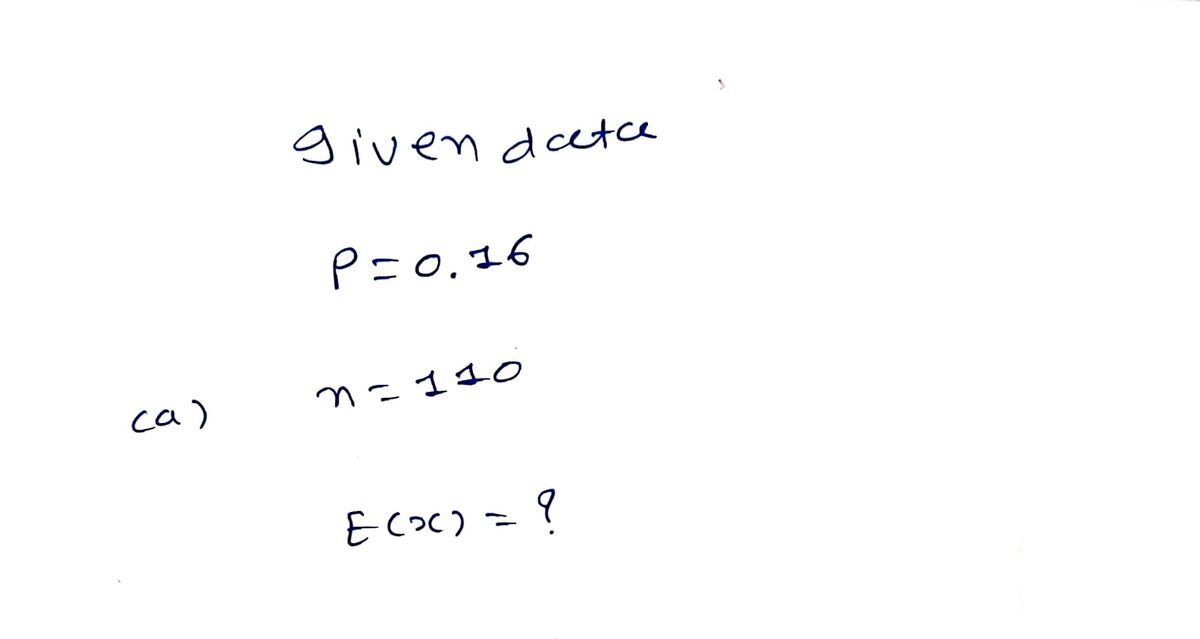 given data
P=0.16
(a) n=110
E(x) = ?